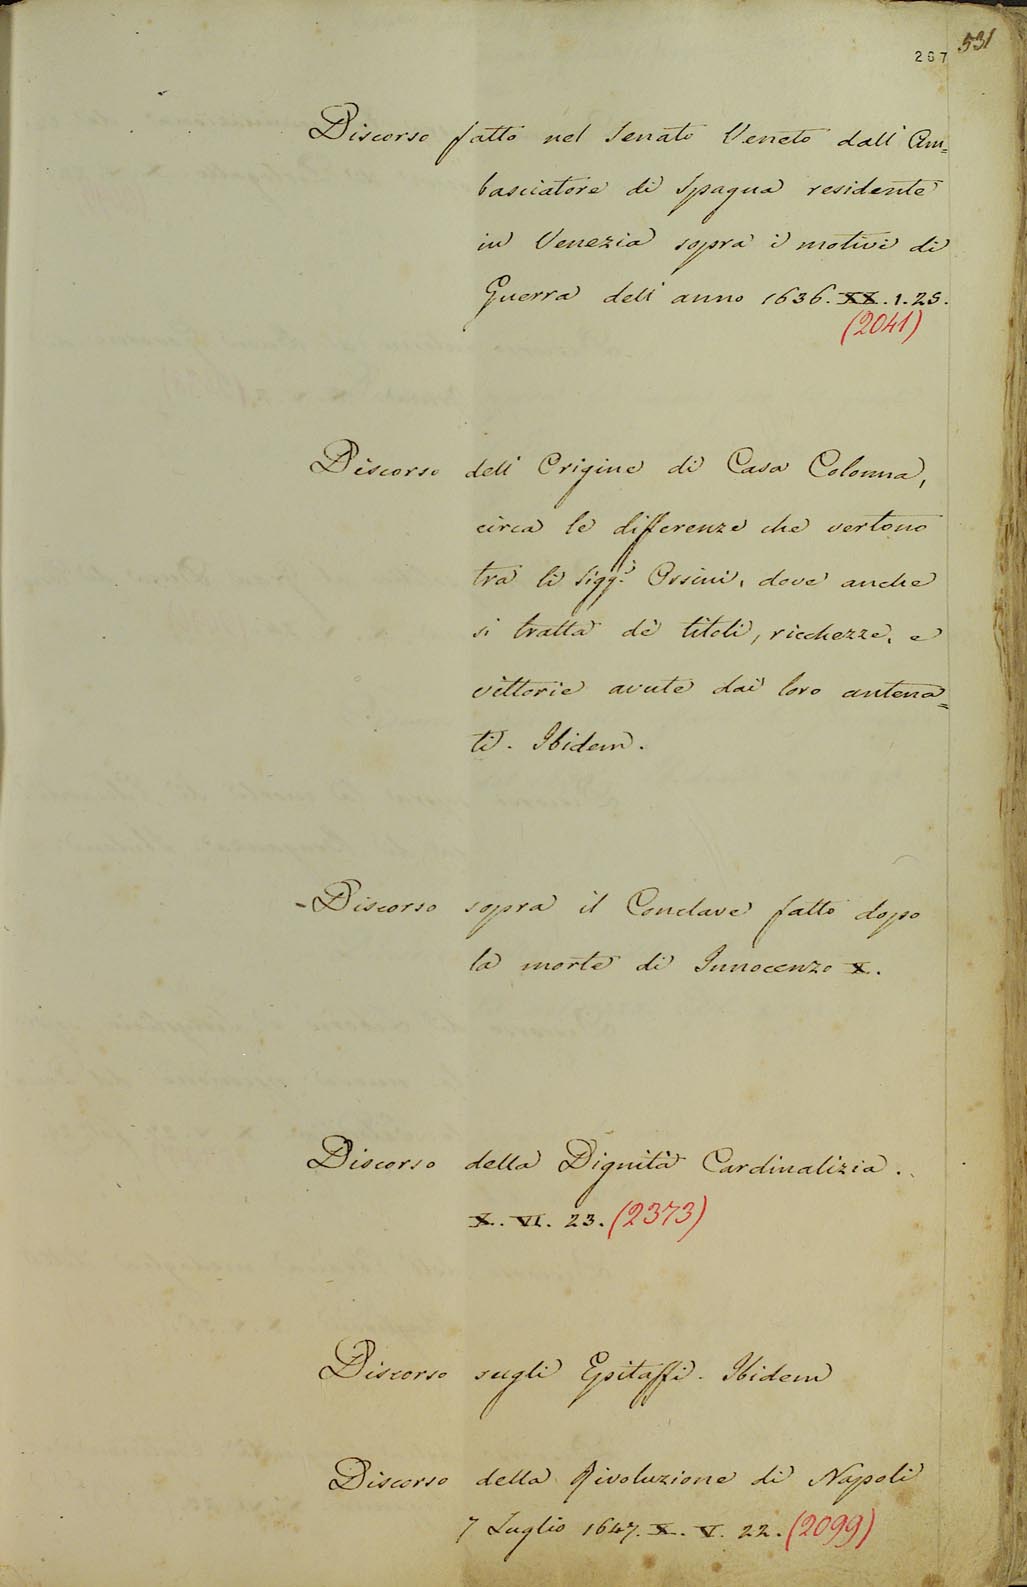 267 531
Discorso fatto nel Senato Veneto dall' Am=
basciatore di Spagna residente
in Venezia sopra i motivi di
Guerra dell' anno 1636. XX. 1. 25.
(2041)
Discorso dell' Origine di Casa Colonna,
circa le differenze che vertono
tra li Sigg.i Orsini, dove anche
si tratta de' titoli, ricchezze, e
vittorie avute dai loro antena=
ti. Ibidem.
-Discorso sopra il Conclave fatto dopo
la morte di Innocenzo X.
Discorso della Dignità Cardinalizia.
X. VI. 23. (2373)
Discorso sugli Epitaffi. Ibidem
Discorso della Rivoluzione di Napoli
7 Luglio 1647. X. V. 22. (2099)